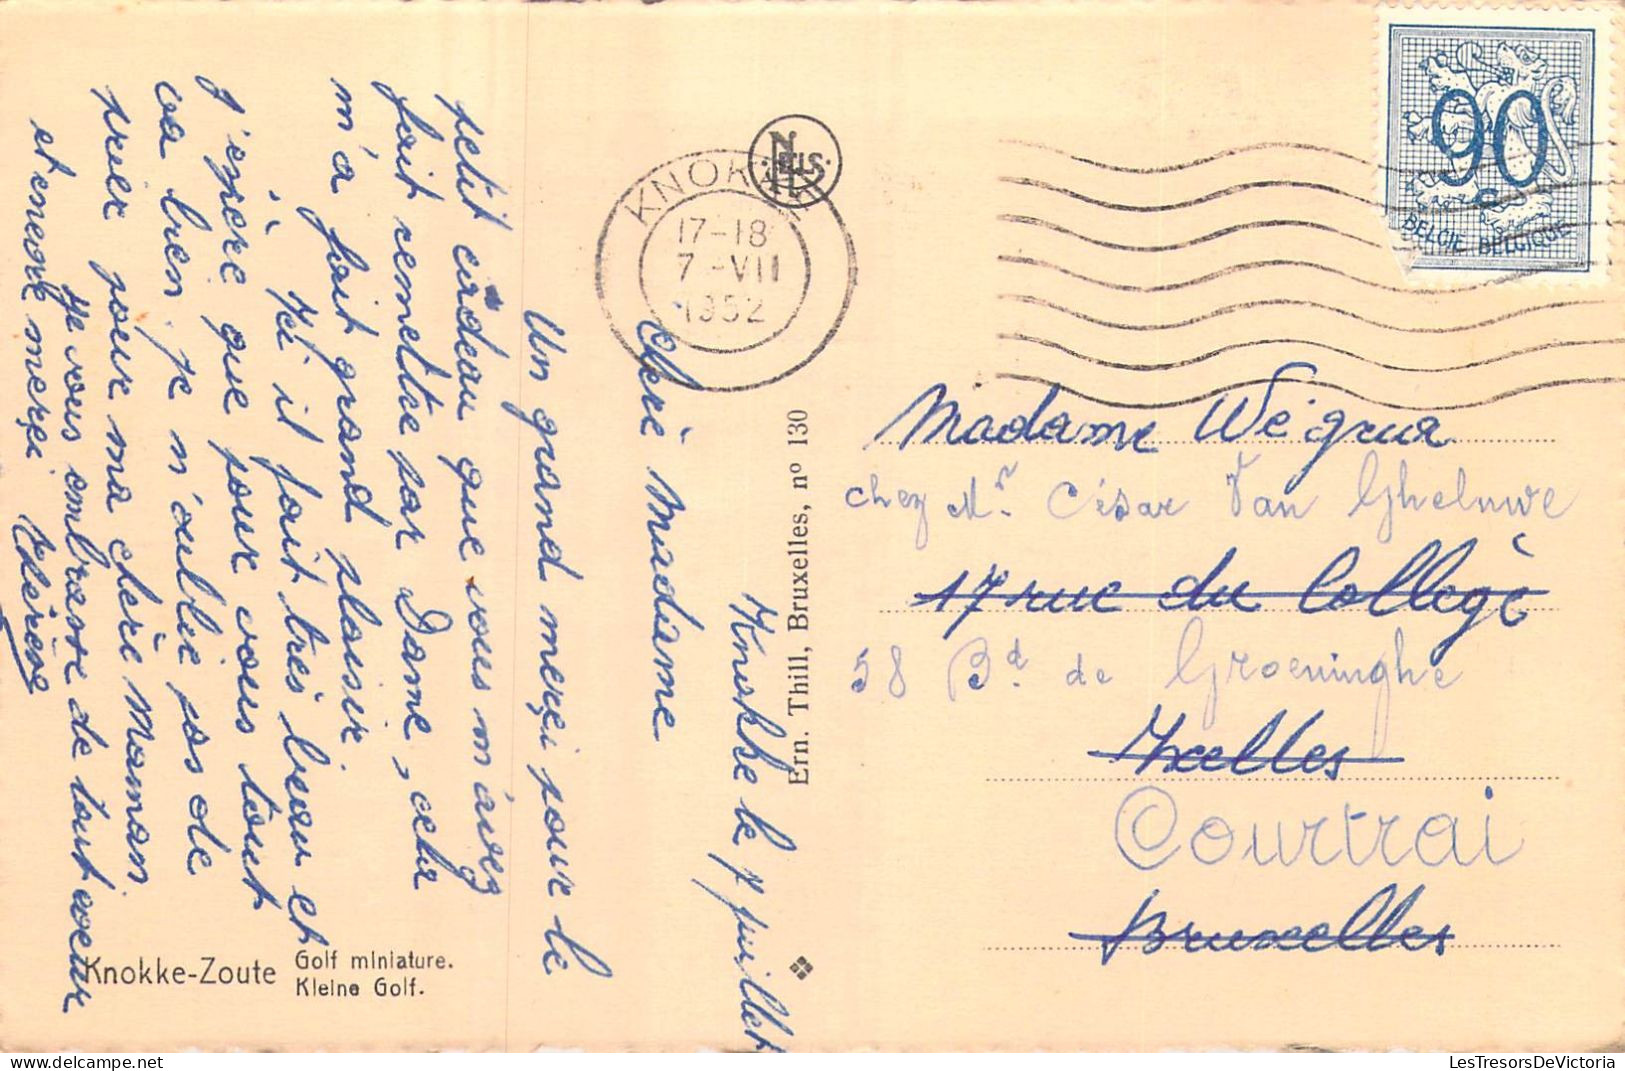 Knokke le 7 juillet
Chère Madame
Un grand merçi pour le
petit cadeau que vous m'avez
fait remettre par Dame, cela
m'a fait grand plaisir.
Ici il fait très beau et
j'espère que pour vous tout
va bien. Je n'oublie pas de
prier pour ma chère Maman.
Je vous embrasse de tout coeur
et encore merçi.
Knokke-Zoute
Golf miniature.
Kleine Golf.
Ern. Thill, Bruxelles, nº 130
NELS
KNOKKE
17-18
7-VII
1952
90
c
BELGIE BELGIQUE
Madame
chez Mr. César Van Gheluwe
17 rue du Collège
58 Bd. de Groeninghe
Ixelles
Courtrai
Bruxelles
LesTresorsDeVictoria.com